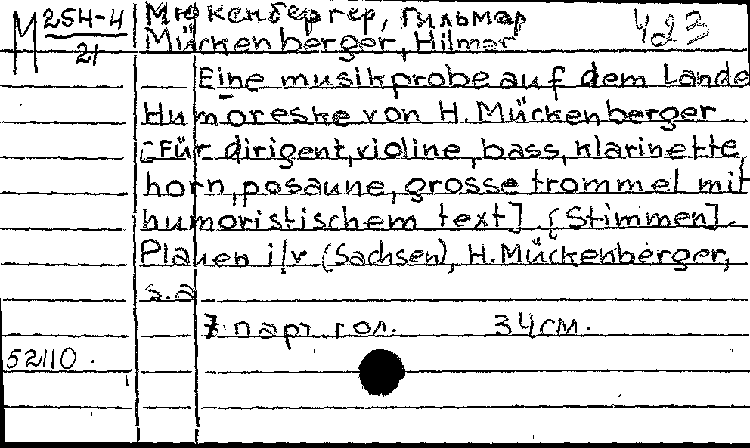 М 254-4 Мюкенбергер, Гильмар 423
21 Mückenberger, Hilmar
Eine musikprobe auf dem Lande
Humoreske von H. Mückenberger
[Für dirigent, violine, bass, klarinette,
horn, posaune, grosse trommel mit
humoristischem text]. [Stimmen].
Plauen i/v (Sachsen), H. Mückenberger,
s.a
7 парт. гол. 34 см.
52110.